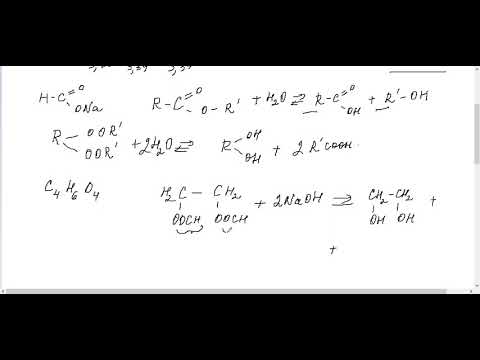 H-C =O ONa R-C =O O-R' + H2O ⇌ R-C =O OH + R'-OH
R OOR' OOR' + 2H2O ⇌ R OH OH + 2 R'COOH
C4H6O4 H2C - CH2 OOCH OOCH + 2NaOH ⇌ CH2-CH2 OH OH +
+